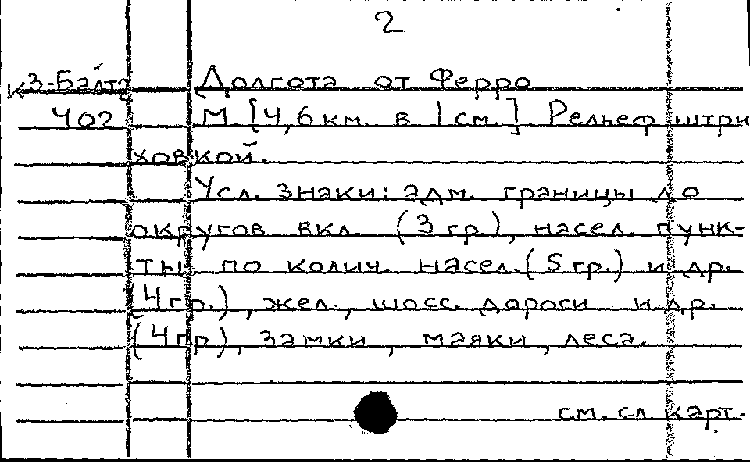 2
К 3-Балта Долгота от Ферро
402 М [4,6 км. в 1 см.]. Рельеф штри
ховкой.
Усл. знаки: адм. границы до
округов вкл. (3 гр.), насел. пунк-
ты по колич. насел. (5 гр.) и др.
(4 гр.), жел., шосс. дороги и др.
(4 гр.), замки, маяки, леса.
см. сл. карт.